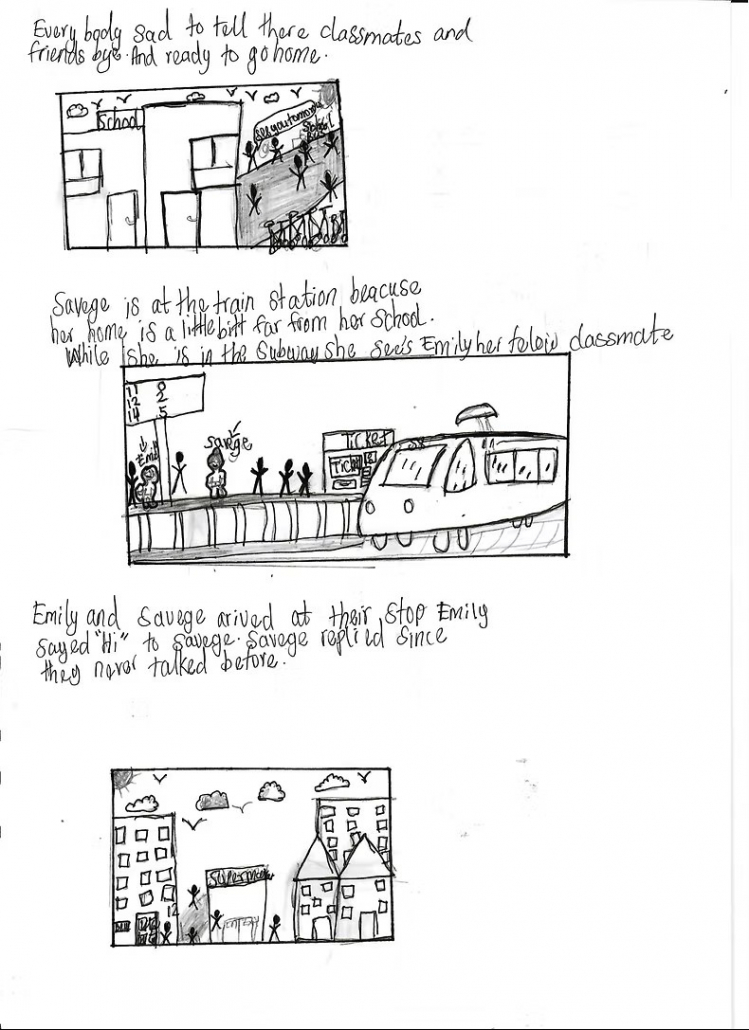 Every body sad to tell there classmates and
friends bye. And ready to go home.
School
See you tomorrow
Savege is at the train station beacuse
her home is a little bitt far from her school.
While she is in the Subway She see's Emily her felow classmate
11 0
12 2
14 5
Savege
Emily
Ticket
Emily and Savege arived at their stop Emily
sayed "Hi" to Savege. Savege replied Since
they never talked before.
Supermarket
12